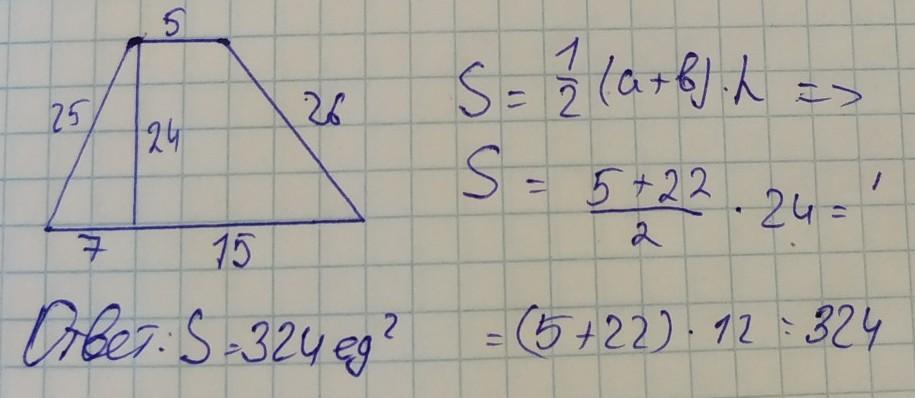 5
25
24
26
7
15
S = 1/2 (a+b)·h =>
S = (5+22)/2 · 24 =
= (5+22) · 12 = 324
Ответ: S = 324 ед²